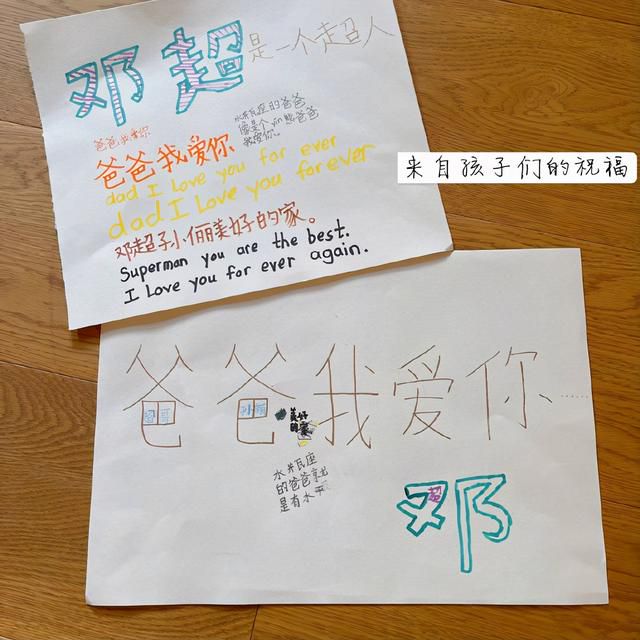 邓超是一个超人
水井瓦座的爸爸
像是个yin熊爸爸
我爱你。
爸爸我爱你
爸爸我爱你
dad I love you for ever
dad I love you forever
来自孩子们的祝福
邓超孙俪美好的家。
Superman you are the best.
I Love you for ever again.
爸爸我爱你……
超哥
孙俪
美好
的家
水井瓦座
的爸爸就
是有水平
邓
超